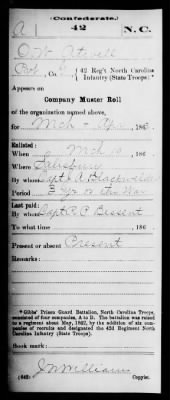 (Confederate.)
A | 42 | N.C.
O. W. Atwell
Co. , 42 Reg't North Carolina
Infantry (State Troops)*
Appears on
Company Muster Roll
of the organization named above,
for Mch & Apr , 186
Enlisted:
When Mch 19 , 186
Where Salisbury
By whom Capt J. A. Blackwelder
Period 3 yrs or the War
Last paid:
By whom Capt R. C. Bessent
To what time , 186
Present or absent Present
Remarks:
*Gibbs' Prison Guard Battalion, North Carolina Troops,
consisted of four companies, A to D. The battalion was raised
to a regiment about May, 1862, by the addition of six com-
panies of recruits and designated the 42d Regiment North
Carolina Infantry (State Troops).
J M Williams
(642) Copyist.